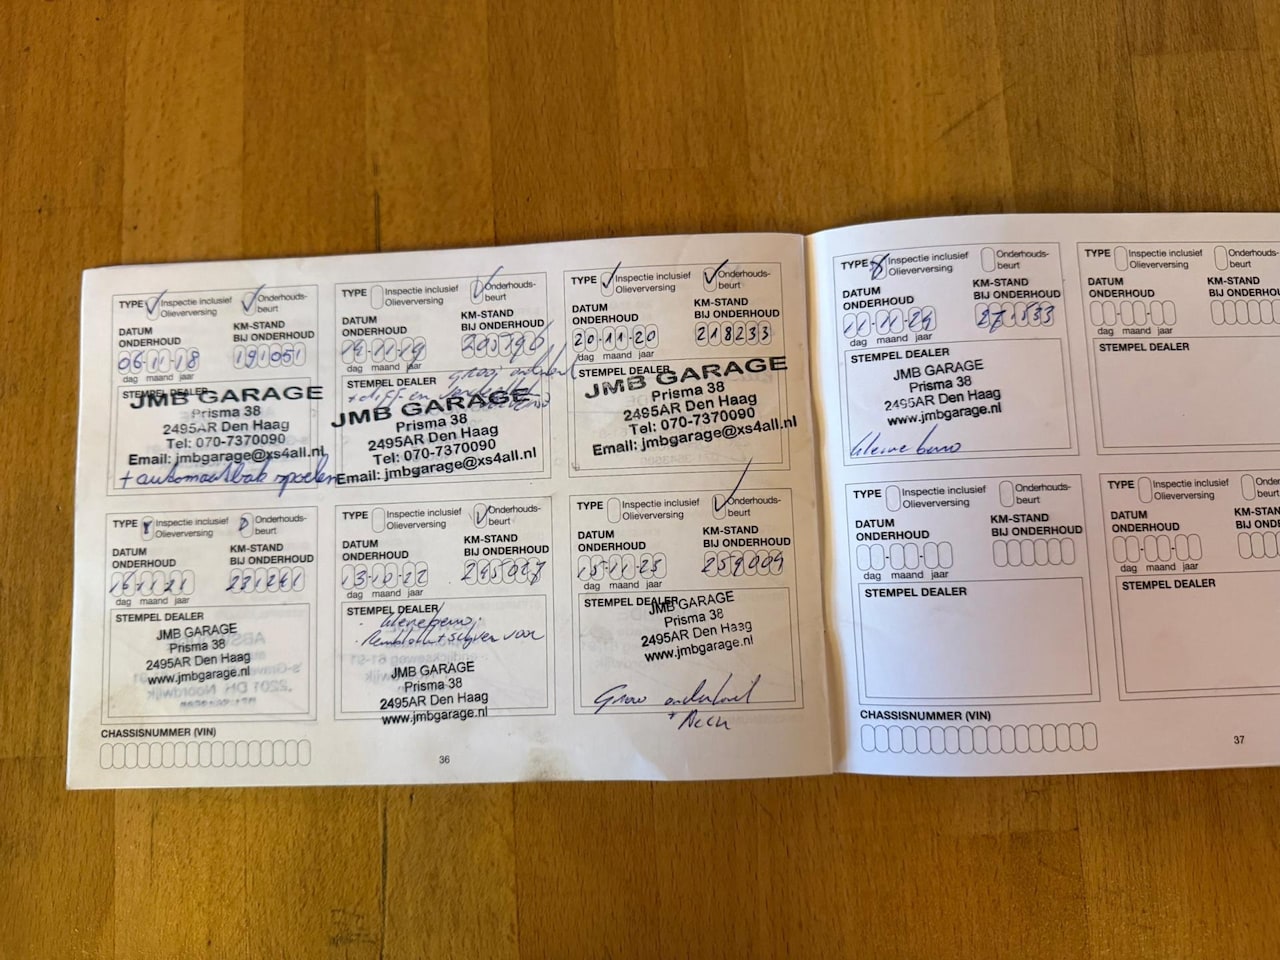 TYPE Inspectie inclusief Olieverversing Onderhouds-beurt
DATUM ONDERHOUD
KM-STAND BIJ ONDERHOUD
06-11-18 191051
dag maand jaar
STEMPEL DEALER
JMB GARAGE
Prisma 38
2495AR Den Haag
Tel: 070-7370090
Email: jmbgarage@xs4all.nl
+ automaatbak spoelen
TYPE Inspectie inclusief Olieverversing Onderhouds-beurt
DATUM ONDERHOUD
KM-STAND BIJ ONDERHOUD
dag maand jaar
STEMPEL DEALER
JMB GARAGE
Prisma 38
2495AR Den Haag
Tel: 070-7370090
Email: jmbgarage@xs4all.nl
TYPE Inspectie inclusief Olieverversing Onderhouds-beurt
DATUM ONDERHOUD
KM-STAND BIJ ONDERHOUD
20-11-20 218233
dag maand jaar
STEMPEL DEALER
JMB GARAGE
Prisma 38
2495AR Den Haag
Tel: 070-7370090
Email: jmbgarage@xs4all.nl
TYPE Inspectie inclusief Olieverversing Onderhouds-beurt
DATUM ONDERHOUD
KM-STAND BIJ ONDERHOUD
16-11-21 231241
dag maand jaar
STEMPEL DEALER
JMB GARAGE
Prisma 38
2495AR Den Haag
www.jmbgarage.nl
TYPE Inspectie inclusief Olieverversing Onderhouds-beurt
DATUM ONDERHOUD
KM-STAND BIJ ONDERHOUD
13-10-22 245027
dag maand jaar
STEMPEL DEALER
JMB GARAGE
Prisma 38
2495AR Den Haag
www.jmbgarage.nl
TYPE Inspectie inclusief Olieverversing Onderhouds-beurt
DATUM ONDERHOUD
KM-STAND BIJ ONDERHOUD
259009
dag maand jaar
STEMPEL DEALER
JMB GARAGE
Prisma 38
2495AR Den Haag
www.jmbgarage.nl
CHASSISNUMMER (VIN)
36
TYPE Inspectie inclusief Olieverversing Onderhouds-beurt
DATUM ONDERHOUD
KM-STAND BIJ ONDERHOUD
dag maand jaar
STEMPEL DEALER
JMB GARAGE
Prisma 38
2495AR Den Haag
www.jmbgarage.nl
TYPE Inspectie inclusief Olieverversing Onderhouds-beurt
DATUM ONDERHOUD
KM-STAND BIJ ONDERHOUD
dag maand jaar
STEMPEL DEALER
TYPE Inspectie inclusief Olieverversing Onderhouds-beurt
DATUM ONDERHOUD
KM-STAND BIJ ONDERHOUD
dag maand jaar
STEMPEL DEALER
TYPE Inspectie inclusief Olieverversing
DATUM ONDERHOUD
dag maand jaar
STEMPEL DEALER
CHASSISNUMMER (VIN)
37